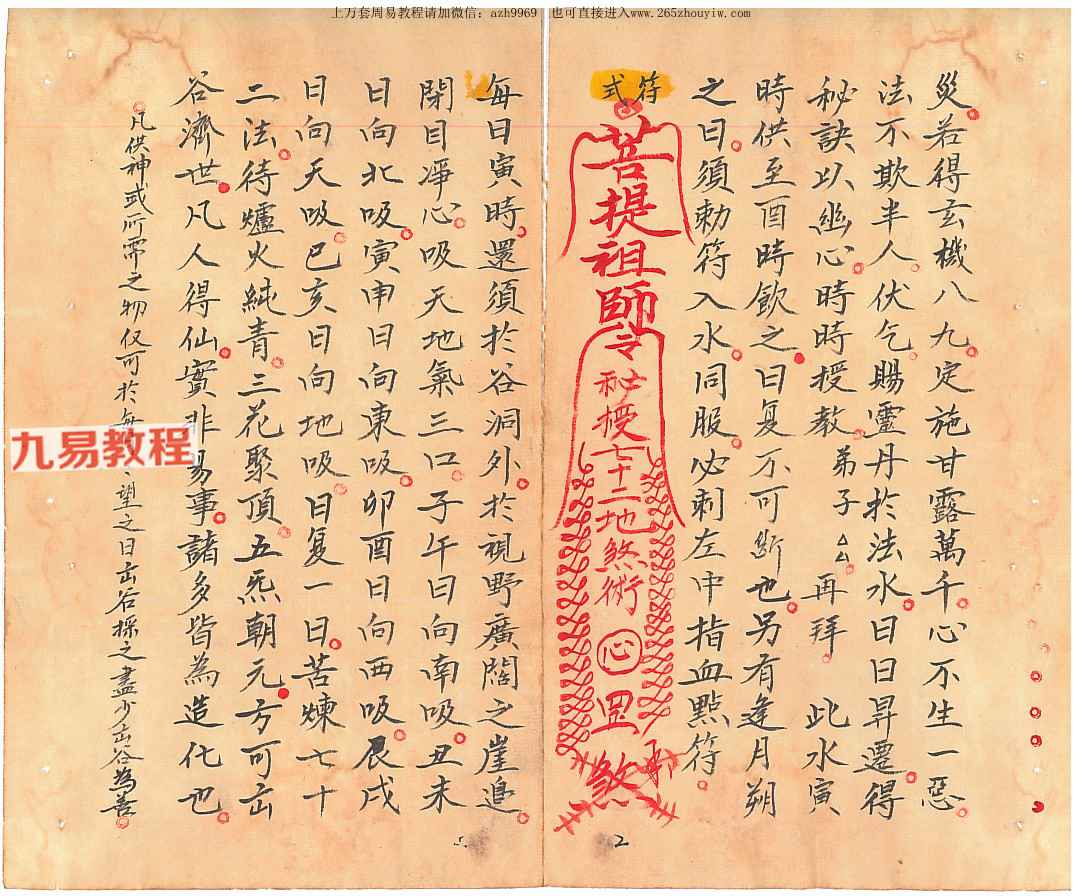 上万套周易教程请加微信：azh9969 也可直接进入www.265zhouyiw.com
災。若得玄機八九。定施甘露萬千。心不生一惡。
法不欺半人。伏乞。賜靈丹於法水。日日昇遷。得
秘訣以幽心。時時授教。弟子△△。再拜。此水寅
時供至酉時飲之。日复不可斷也。另有逢月朔
之日。須勅符入水。同服。必刺左中指血點符。
符式
菩提祖師
令秘授七十二地煞術
心罡
煞
每日寅時。還須於谷洞外。於視野廣闊之崖邊。
閉目淨心。吸天地氣三口。子午日向南吸。丑未
日向北吸。寅申日向東吸。卯酉日向西吸。辰戌
日向天吸。巳亥日向地吸。日复一日。苦煉七十
二法。待爐火純青。三花聚頂。五炁朝元。方可出
谷濟世。凡人得仙。實非易事。諸多皆為造化也。
凡供神或所需之物仅可於每望之日出谷採之盡少出谷為善。
九易教程
2